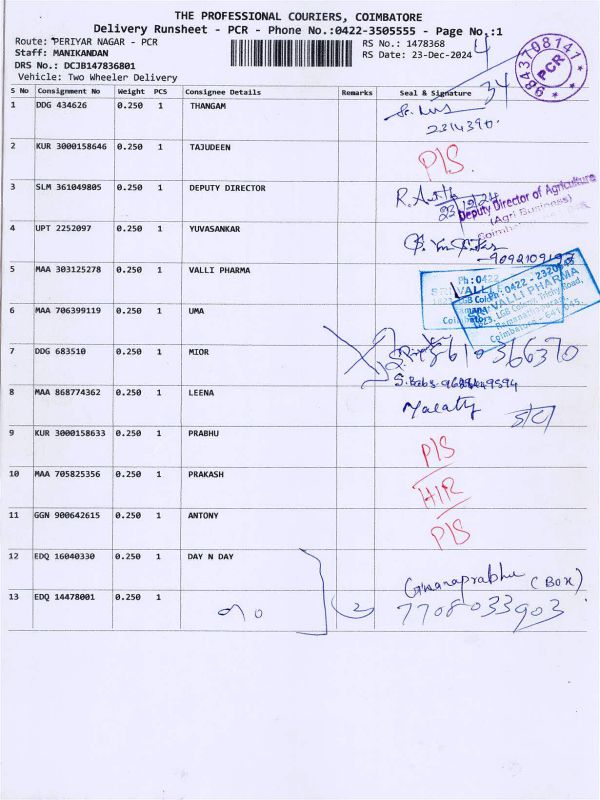 THE PROFESSIONAL COURIERS, COIMBATORE
Delivery Runsheet - PCR - Phone No.:0422-3505555 - Page No.:1
Route: PERIYAR NAGAR - PCR
RS No.: 1478368
Staff: MANIKANDAN
RS Date: 23-Dec-2024
DRS No.: DCJB147836801
Vehicle: Two Wheeler Delivery
9843708141
PCR
34
S No Consignment No Weight PCS Consignee Details Remarks Seal & Signature
1 DDG 434626 0.250 1 THANGAM
2314390
2 KUR 3000158646 0.250 1 TAJUDEEN P/S
3 SLM 361049805 0.250 1 DEPUTY DIRECTOR
23/12/24
Deputy Director of Agriculture
(Agri Business)
4 UPT 2252097 0.250 1 YUVASANKAR
5 MAA 303125278 0.250 1 VALLI PHARMA
Ph : 0422 - 2320645
SRI VALLI PHARMA
1823, LGB Colony, Trichy Road,
Ramanathapuram,
Coimbatore - 641 045.
6 MAA 706399119 0.250 1 UMA
7 DDG 683510 0.250 1 MIOR
8610366370
8 MAA 868774362 0.250 1 LEENA
9 KUR 3000158633 0.250 1 PRABHU P/S
10 MAA 705825356 0.250 1 PRAKASH H/R
11 GGN 900642615 0.250 1 ANTONY P/S
12 EDQ 16040330 0.250 1 DAY N DAY
Gnanaprabhu (Box)
13 EDQ 14478001 0.250 1 2 7708033903